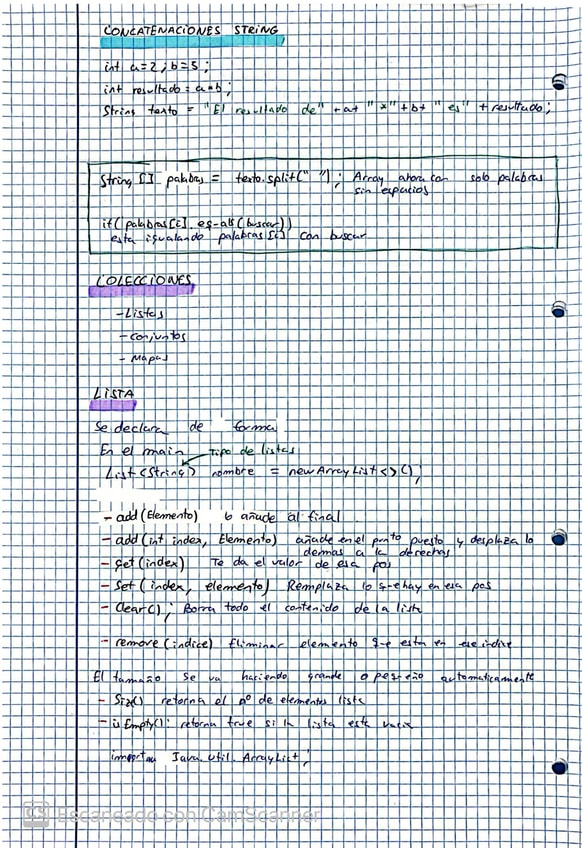 CONCATENACIONES STRING
int a=2; b=5;
int resultado = a*b;
String texto = "El resultado de" +a+ "x"+b+ "es" + resultado;
String [] palabras = texto.split(" "); Array ahora con solo palabras
sin espacios
if( palabras[c]. equals(buscar))
esta igualando palabras[c] con buscar
COLECCIONES
- Listas
- conjuntos
- Mapas
LISTA
Se declara de forma
En el main Tipo de listas
List <String> nombre = new ArrayList<>();
- add(Elemento) lo añade al final
- add(int index, Elemento) añade en el punto puesto y desplaza lo
demas a la derechas
- get(index) Te da el valor de esa pos
- Set(index, elemento) Remplaza lo que hay en esa pos
- Clear(); Borra todo el contenido de la lista
- remove(indice) Eliminar elemento que esta en ese indice
El tamaño se va haciendo grande o pequeño automaticamente
- Size() retorna el nº de elementos lista
- isEmpty(): retorna true si la lista esta vacia
importar Java.util.ArrayList;
CS Escaneado con CamScanner